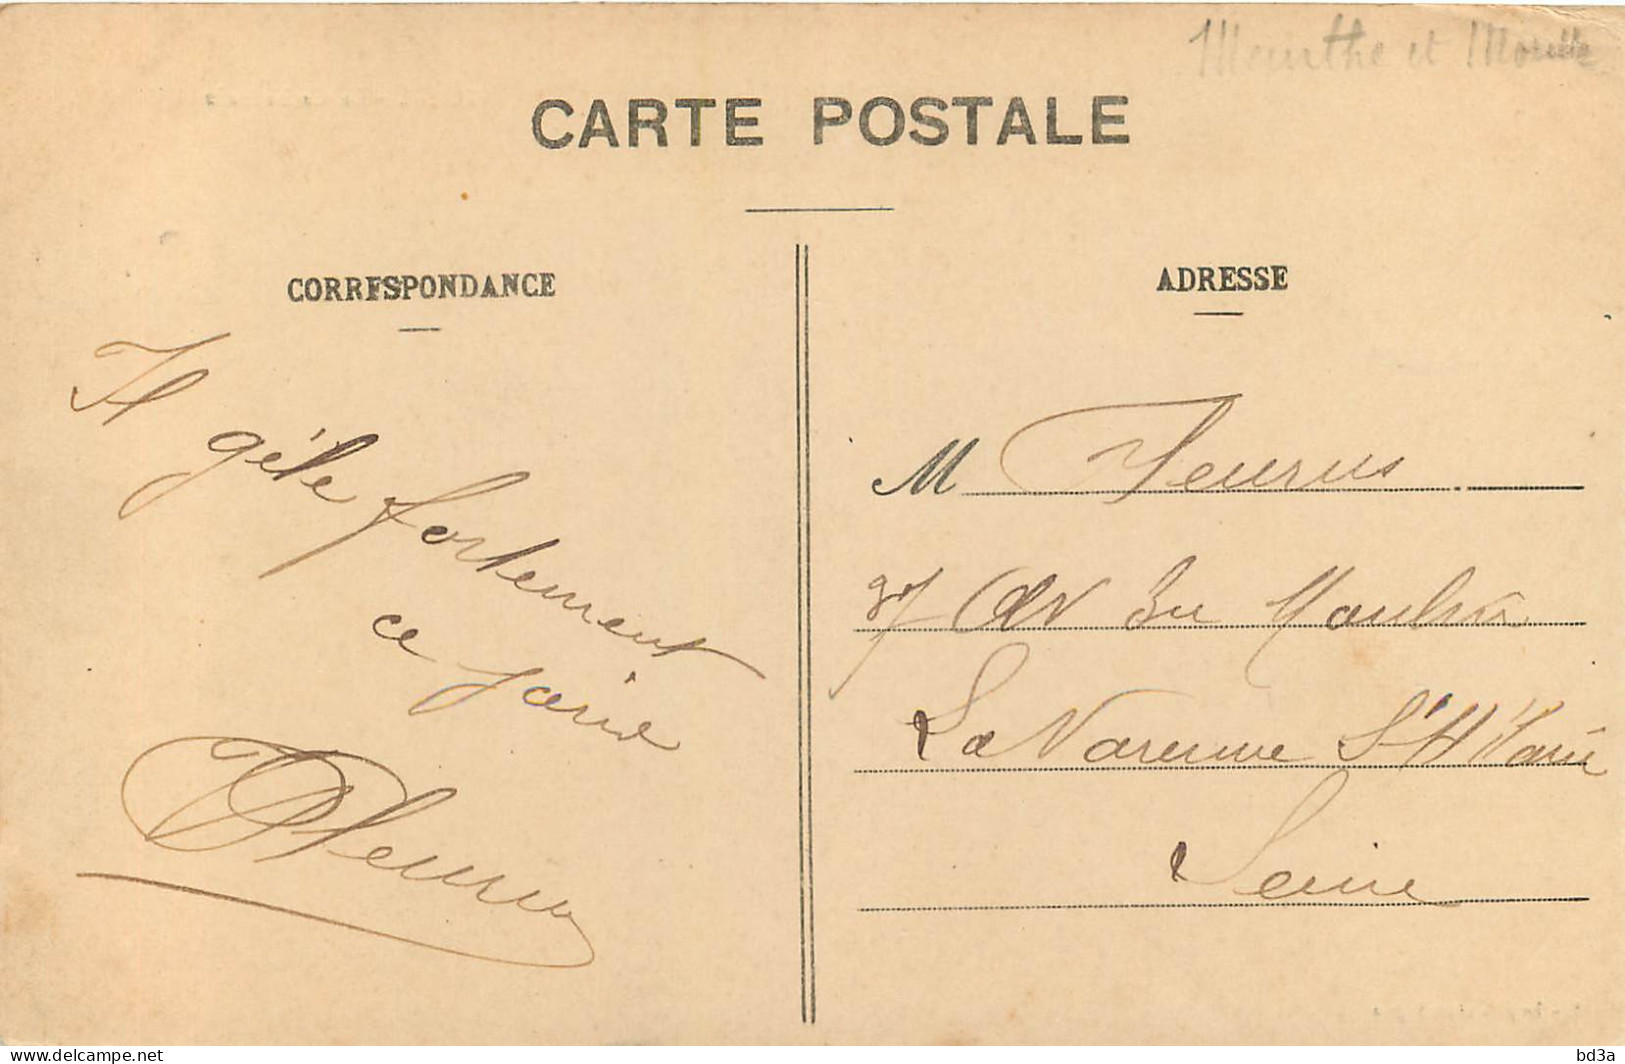 Meurthe et Moselle
CARTE POSTALE
CORRESPONDANCE
ADRESSE
Il
gèle fortement
ce soir
Fleurus
M Fleurus
97 Av du Moulin
La Varenne St Hilaire
Seine
Delcampe-bd3a